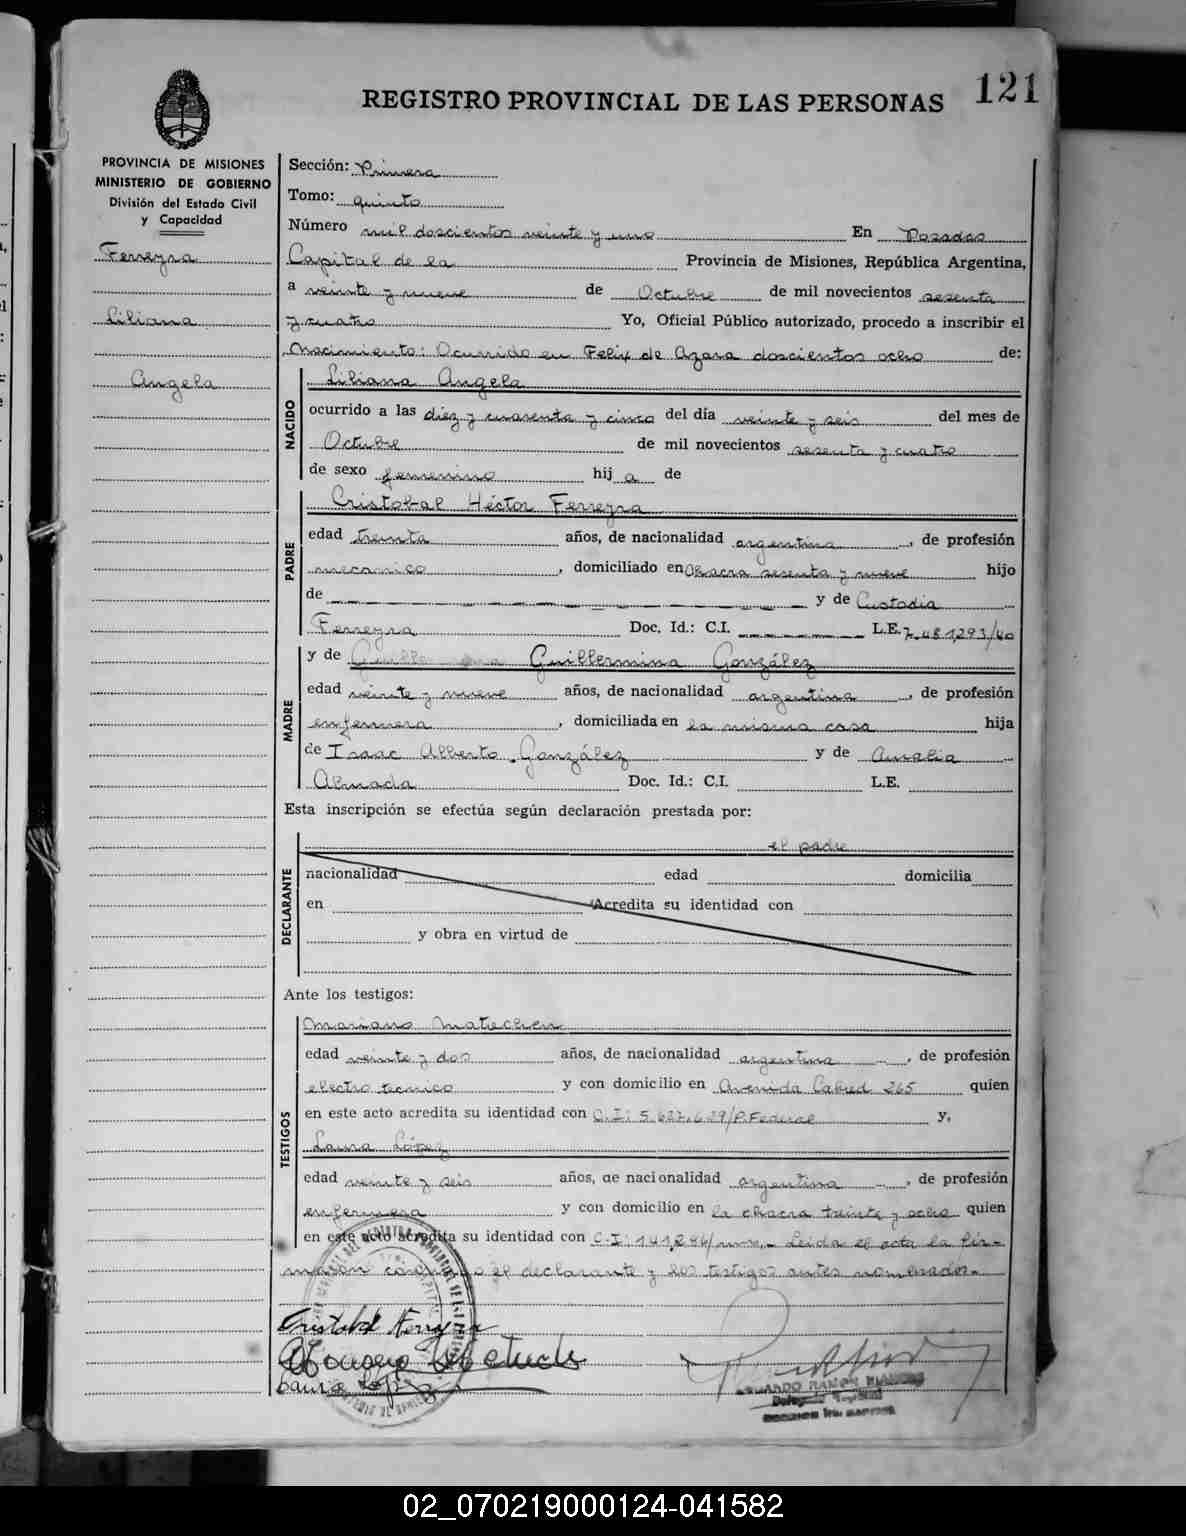 REGISTRO PROVINCIAL DE LAS PERSONAS
121
PROVINCIA DE MISIONES
MINISTERIO DE GOBIERNO
División del Estado Civil
y Capacidad
Ferreyra
Liliana
Angela
Sección: Primera
Tomo: quinto
Número mil doscientos veinte y uno En Posadas
Capital de la Provincia de Misiones, República Argentina,
a veinte y nueve de Octubre de mil novecientos sesenta
y cuatro Yo, Oficial Público autorizado, procedo a inscribir el
Nacimiento: Ocurrido en Felix de Azara doscientos ocho de:
NACIDO
Liliana Angela
ocurrido a las diez y cuarenta y cinco del día veinte y seis del mes de
Octubre de mil novecientos sesenta y cuatro
de sexo femenino hij a de
PADRE
Cristobal Héctor Ferreyra
edad treinta años, de nacionalidad argentina, de profesión
mecanico, domiciliado en Chacra sesenta y nueve hijo
de y de Custodia
Ferreyra Doc. Id.: C.I. L.E. 7.481,293/40
MADRE
y de Guillermina González
edad veinte y nueve años, de nacionalidad argentina, de profesión
enfermera, domiciliada en la misma casa hija
de Isaac Alberto González y de Amalia
Almada Doc. Id.: C.I. L.E.
Esta inscripción se efectúa según declaración prestada por:
DECLARANTE
el padre
nacionalidad edad domicilia
en Acredita su identidad con
y obra en virtud de
Ante los testigos:
TESTIGOS
Mariano
edad veinte y dos años, de nacionalidad argentina, de profesión
electro tecnico y con domicilio en Avenida Cabred 265 quien
en este acto acredita su identidad con C.I: 5.627.629/P.Federal y,
Laura López
edad veinte y seis años, de nacionalidad argentina, de profesión
enfermera y con domicilio en la chacra treinta y ocho quien
en este acto acredita su identidad con C.I: 141,246/ Leida el acta la fir-
maron conmigo el declarante y los testigos antes nombrados.-
Cristobal Ferreyra
Laura López
RAMON
02_070219000124-041582